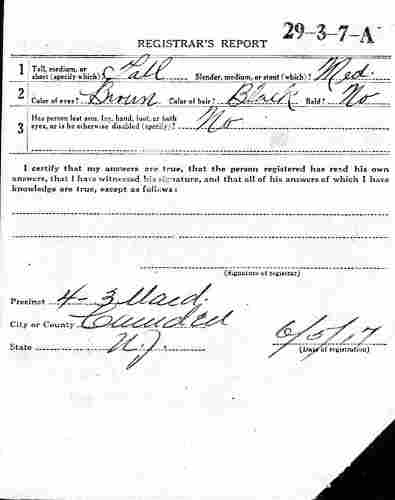 29-3-7-A
REGISTRAR'S REPORT
1 Tall, medium, or short (specify which)? Tall Slender, medium, or stout (which)? Med.
2 Color of eyes? Brown Color of hair? Black Bald? No
3 Has person lost arm, leg, hand, foot, or both eyes, or is he otherwise disabled (specify)? No
I certify that my answers are true, that the person registered has read his own
answers, that I have witnessed his signature, and that all of his answers of which I have
knowledge are true, except as follows:
(Signature of registrar)
Precinct 4-3 Ward.
City or County Camden
State N.J. 6/5/17
(Date of registration)